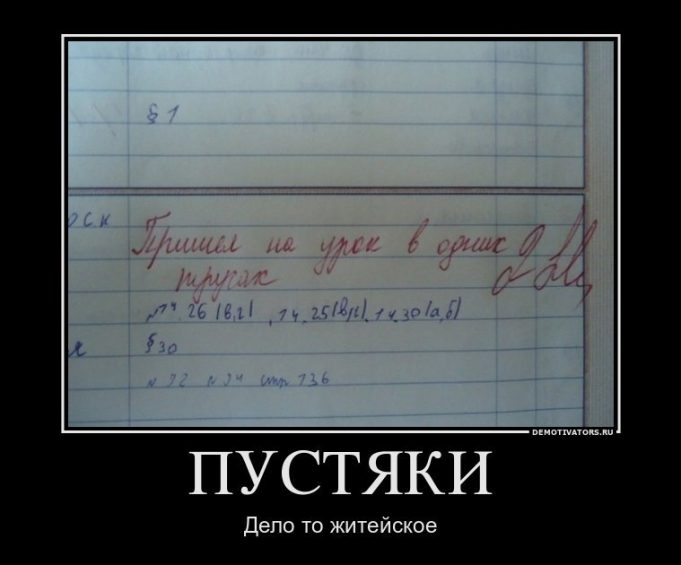 § 1
рск
Пришел на урок в одних
трусах
2
№14.26 (в,г), 14.25(в,г), 14.30(а,б)
я § 30
№ 92 № 94 стр 136
DEMOTIVATORS.RU
ПУСТЯКИ
Дело то житейское